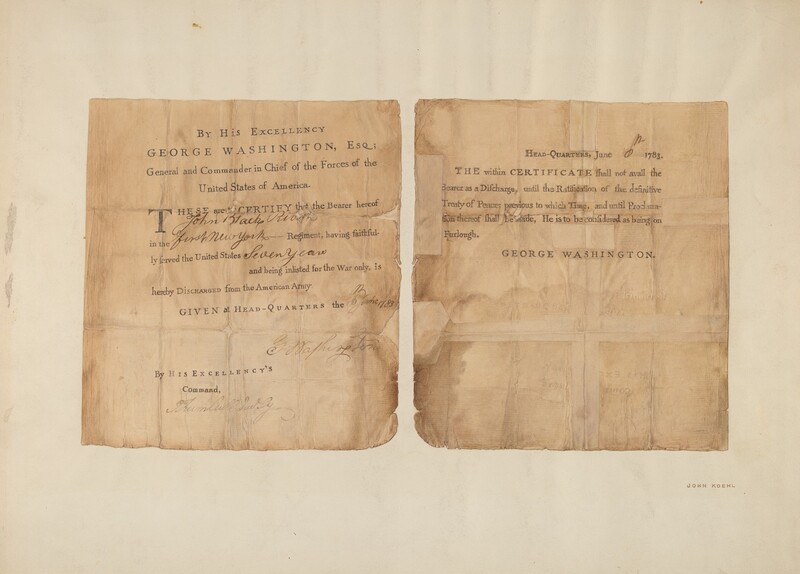 By His Excellency
GEORGE WASHINGTON, Esq;
General and Commander in Chief of the Forces of the
United States of America.
THESE are to CERTIFY that the Bearer hereof
John
in the first New York Regiment, having faithful-
ly served the United States Seven Years
and being inlisted for the War only, is
hereby Discharged from the American Army
GIVEN at Head-Quarters the 8 June 1783
G Washington
By His Excellency's
Command,
Head-Quarters, June 8th 1783.
THE within CERTIFICATE shall not avail the
Bearer as a Discharge, until the Ratification of the definitive
Treaty of Peace; previous to which Time, and until Proclama-
tion thereof shall be made, He is to be considered as being on
Furlough.
GEORGE WASHINGTON.
JOHN KOEHL